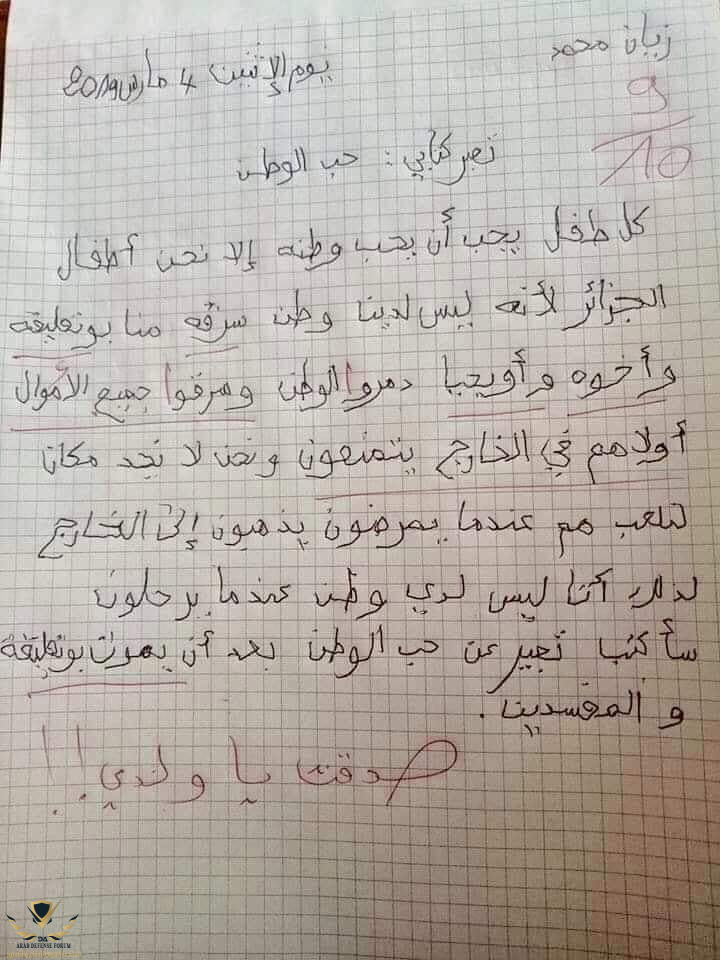 زيان محمد
يوم الإثنين 4 مارس 2019
9
10
تعبير كتابي : حب الوطن
كل طفل يجب أن يحب وطنه إلا نحن أطفال
الجزائر لأنه ليس لدينا وطن سرقه منا بوتفليقة
وأخوه وأويحيا دمروا الوطن وسرقوا جميع الأموال
أولادهم في الخارج يتمتعون ونحن لا نجد مكان
لنلعب هم عندما يمرضون يذهبون إلى الخارج
لذلك أنا ليس لدي وطن عندما يرحلون
سأكتب تعبير عن حب الوطن بعد أن يموت بوتفليقة
و المفسدين .
صدقت يا ولدي !!
ARAB DEFENSE FORUM